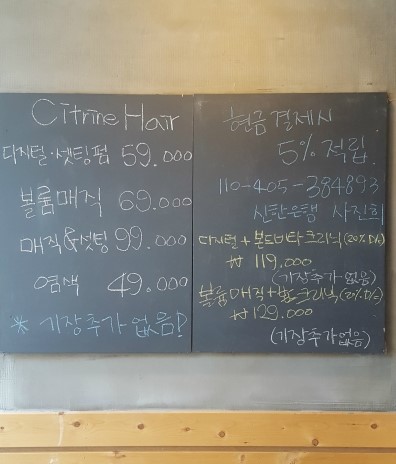 Citrine Hair
디지털·셋팅펌 59.000
볼륨매직 69.000
매직&셋팅 99.000
염색 49.000
* 기장추가 없음!
현금결제시
5% 적립.
110-405-384893
신한은행 사진희
디지털 + 본드비타 크리닉 (20% D/c)
₩ 119.000
(기장추가 없음)
볼륨매직 + 크리닉 (20% D/c)
₩ 129.000
(기장추가없음)